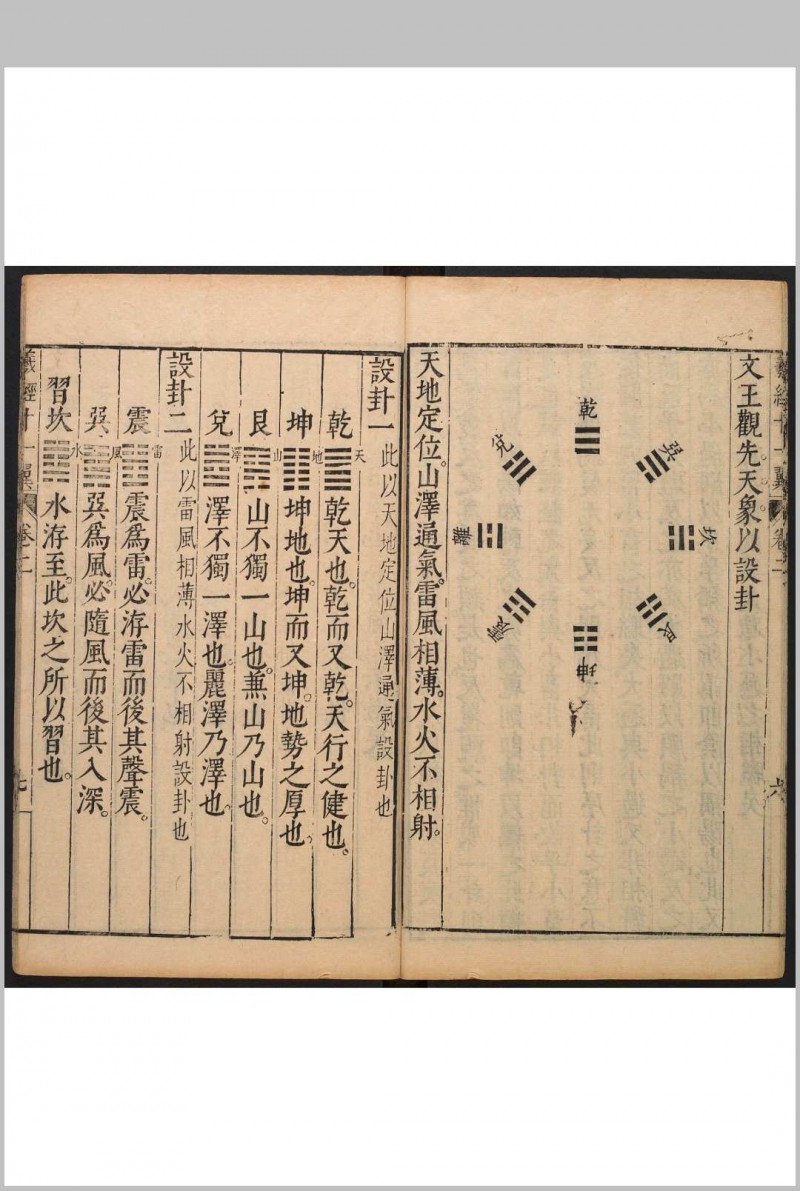 文王觀先天象以設卦
乾
兌
巽
離
坎
震
艮
坤
天地定位。山澤通氣。雷風相薄。水火不相射。
羲經十一翼
卷二
六
設卦一 此以天地定位山澤通氣設卦也
乾 天 乾天也。乾而又乾。天行之健也。
坤 地 坤地也。坤而又坤。地勢之厚也。
艮 山 山不獨一山也。兼山乃山也。
兌 澤 澤不獨一澤也。麗澤乃澤也。
設卦二 此以雷風相薄水火不相射設卦也
震 雷 震爲雷。必洊雷而後其聲震。
巽 風 巽爲風。必隨風而後其入深。
習坎 水 水洊至。此坎之所以習也。
羲經十一翼
卷二
七